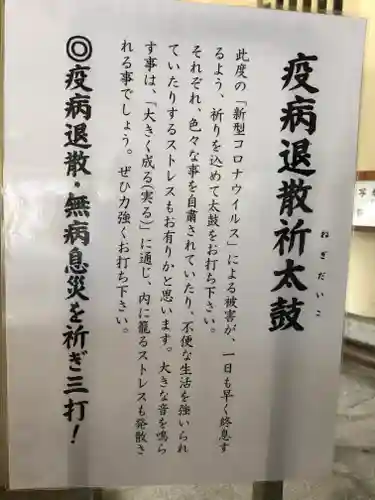 疫病退散祈太鼓
ねぎだいこ
此度の「新型コロナウイルス」による被害が、一日も早く終息す
るよう、祈りを込めて太鼓をお打ち下さい。
それぞれ、色々な事を自粛されていたり、不便な生活を強いられ
ていたりするストレスもお有りかと思います。大きな音を鳴ら
す事は、「大きく成る(実る)」に通じ、内に籠るストレスも発散さ
れる事でしょう。ぜひ力強くお打ち下さい。
◎疫病退散・無病息災を祈ぎ三打！